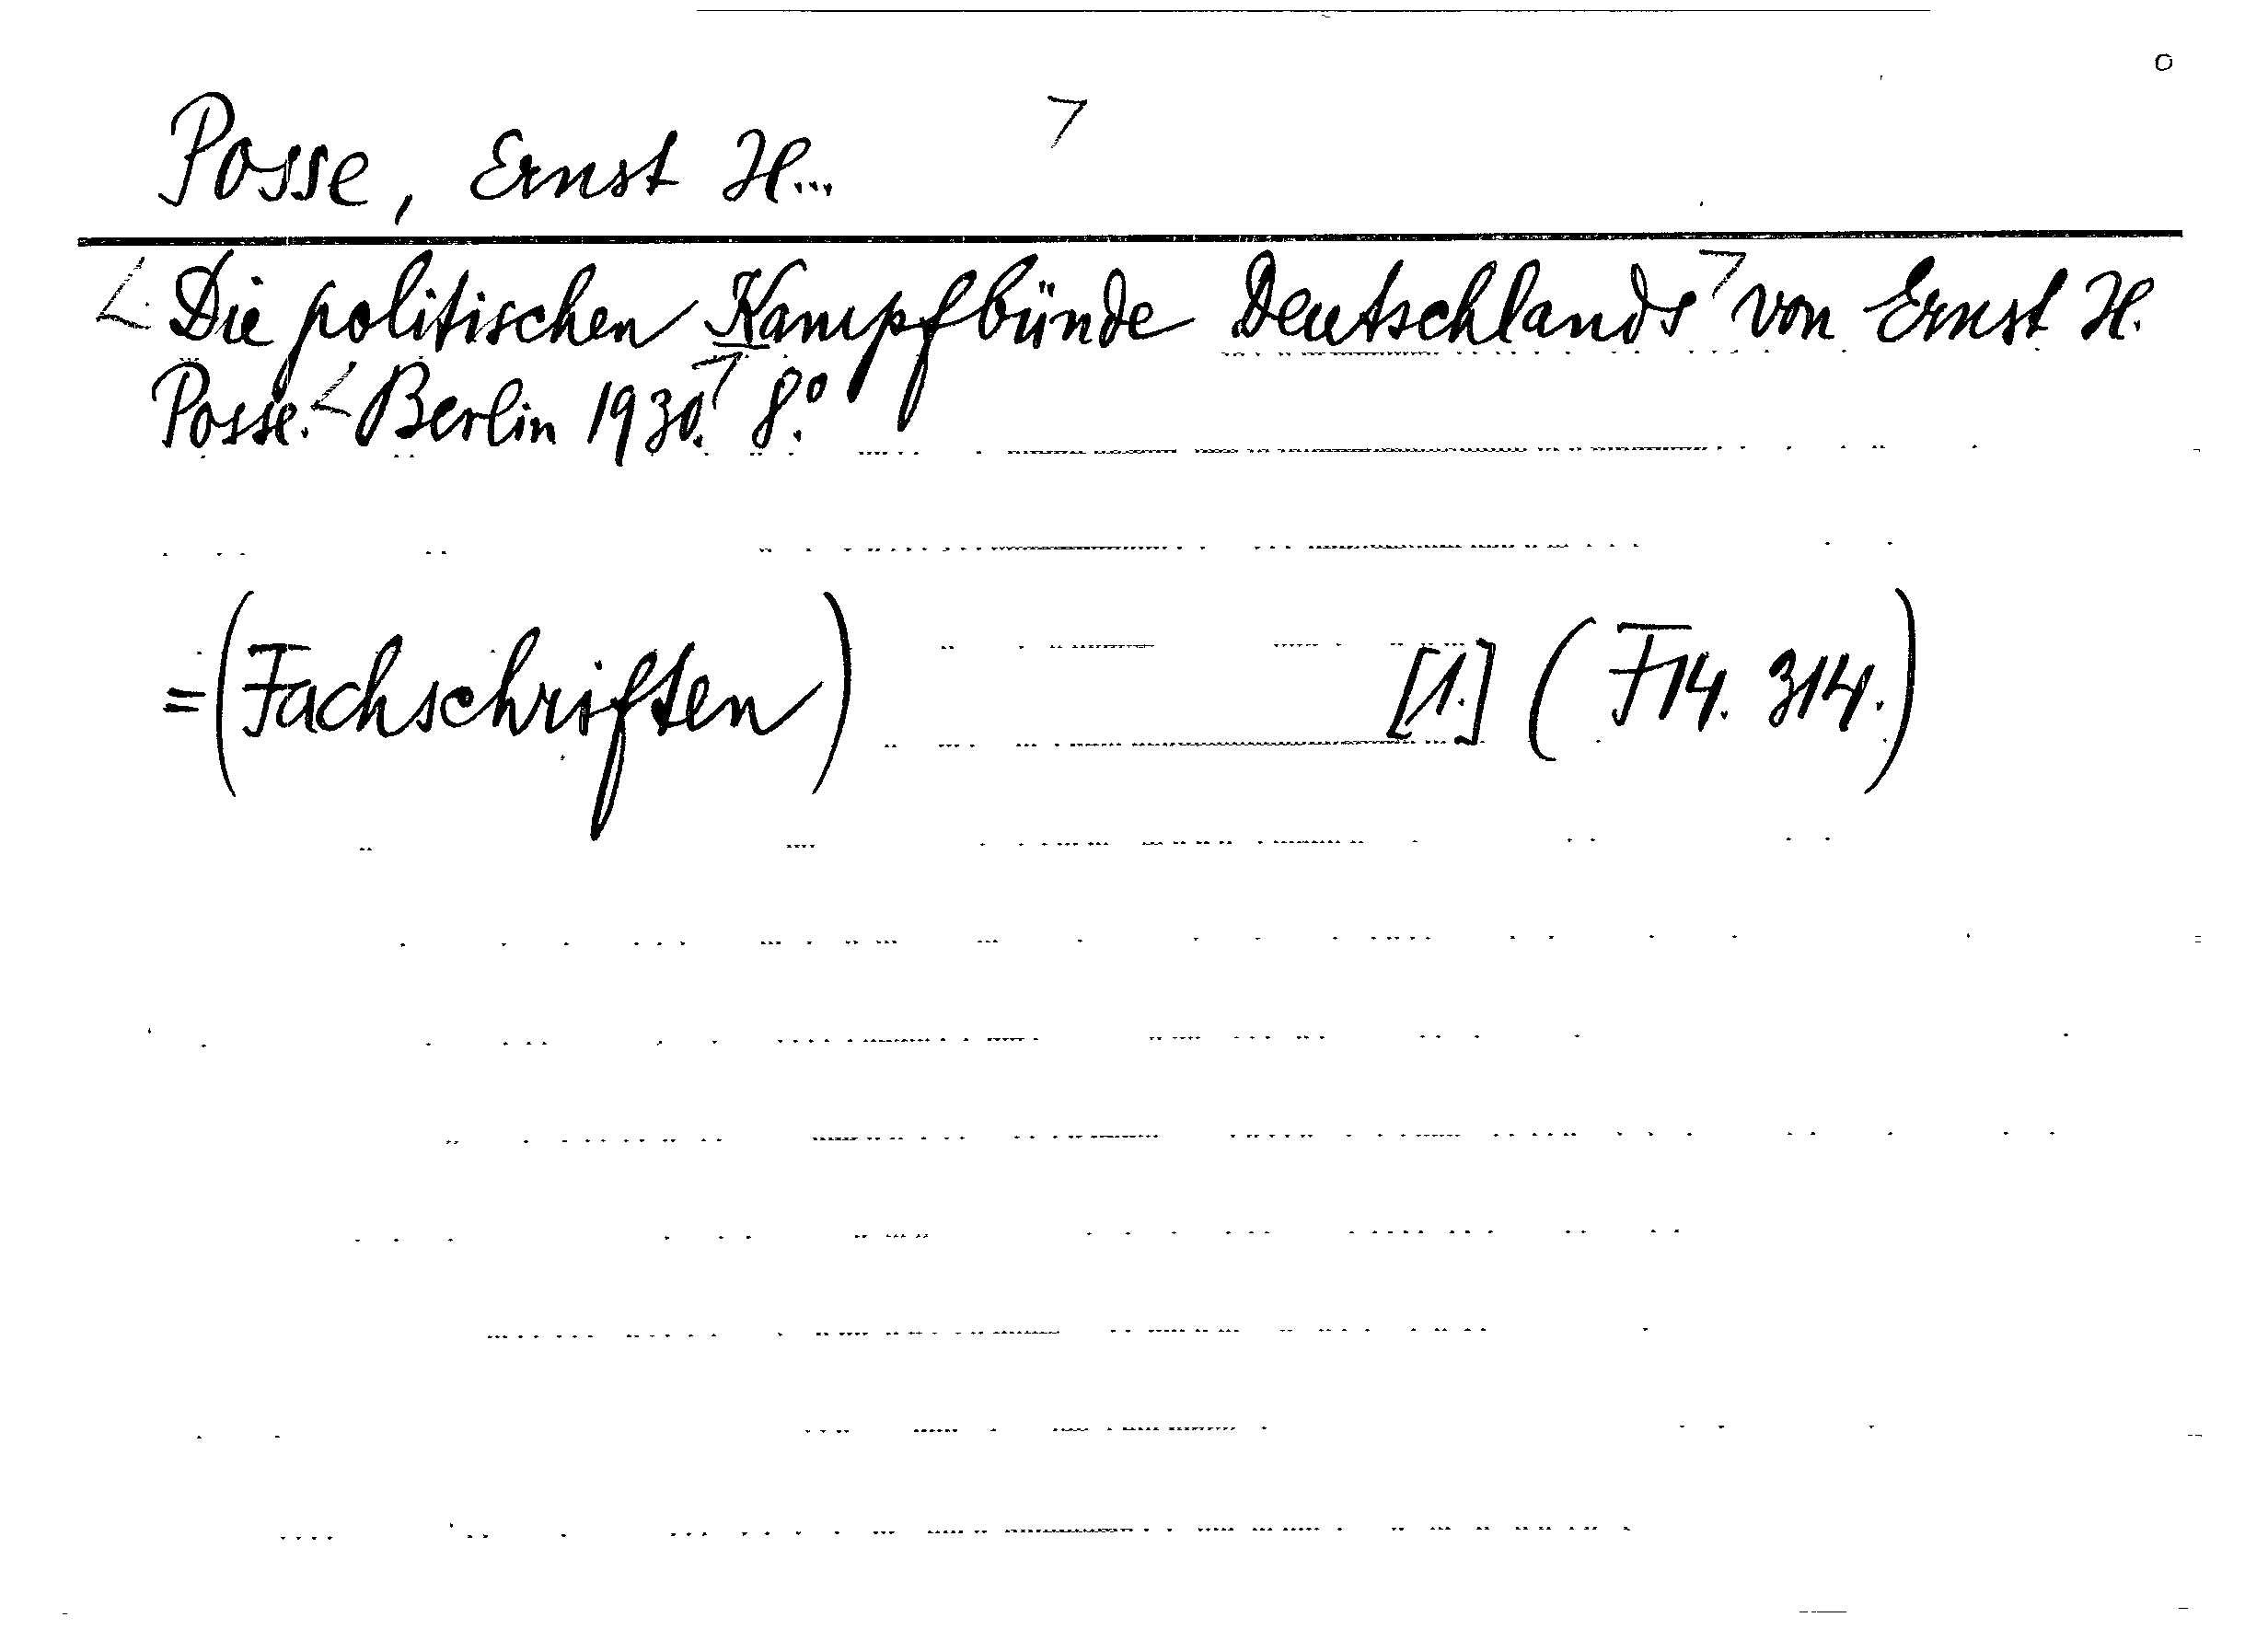 Posse, Ernst H...
Die politischen Kampfbünde Deutschlands von Ernst H.
Posse. Berlin 1930. 8.°
=(Fachschriften) [1.] (F14. 314.)